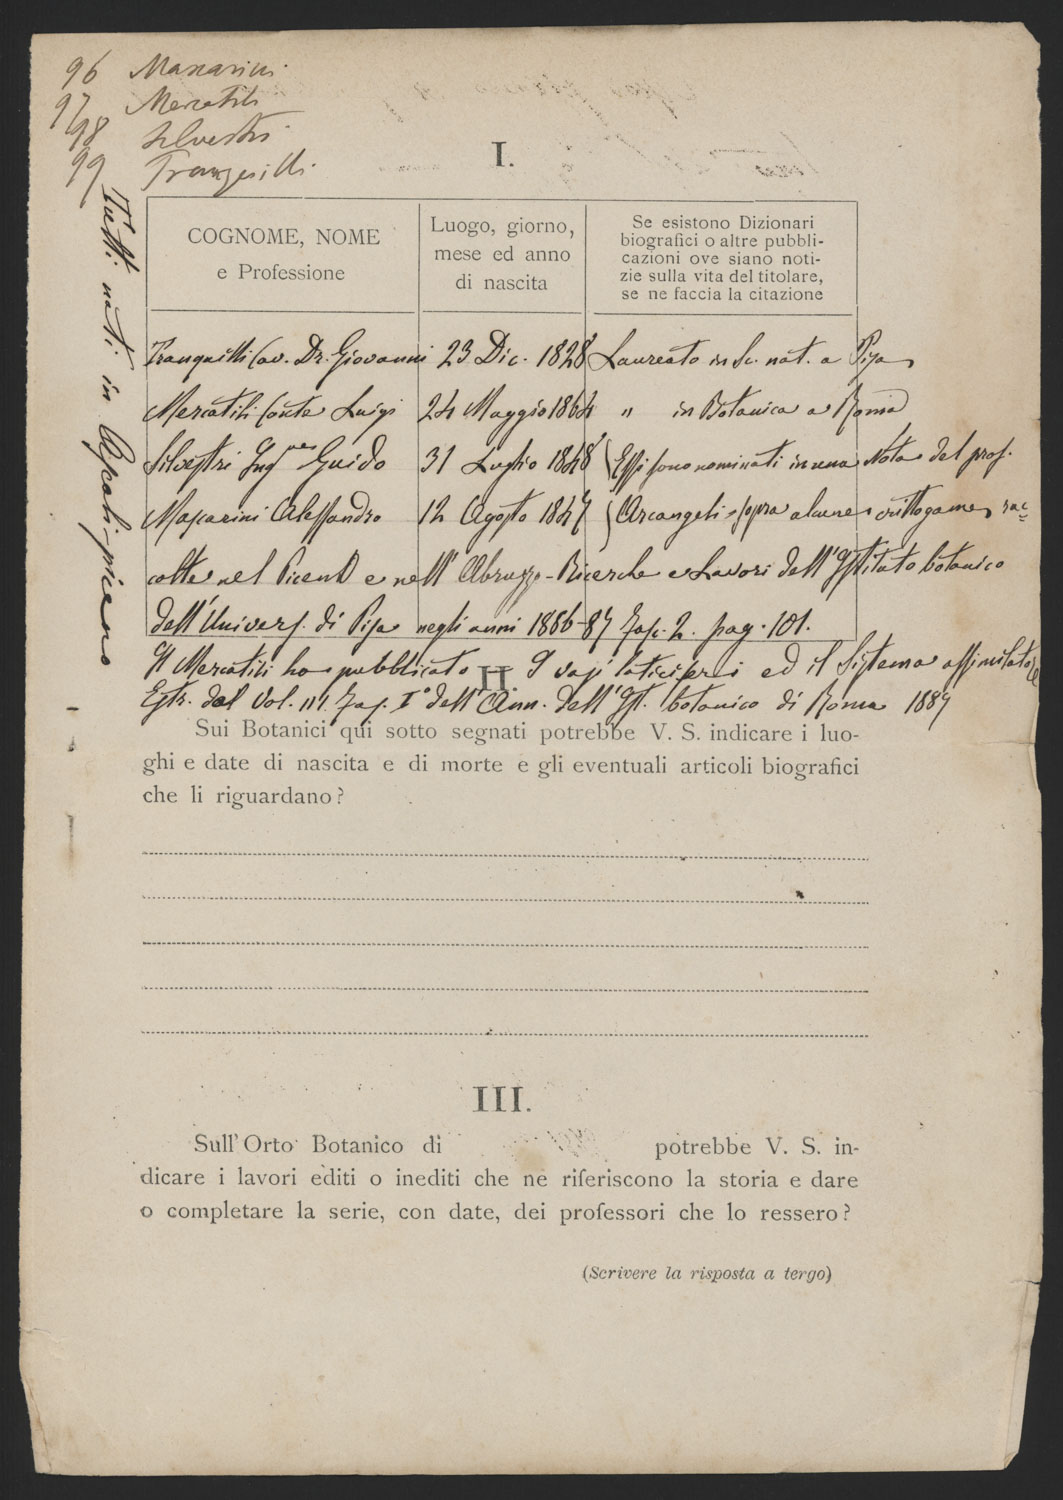 96 Mascarini
97 Mercatili
98 Silvestri
99 Tranquilli
Tutti nati in Ascoli-piceno
I.
COGNOME, NOME
e Professione
Luogo, giorno,
mese ed anno
di nascita
Se esistono Dizionari
biografici o altre pubbli-
cazioni ove siano noti-
zie sulla vita del titolare,
se ne faccia la citazione
Tranquilli Cav. Dr. Giovanni 23 Dic. 1828 Laureato in Sc. nat. a Pisa
Mercatili Conte Luigi 24 Maggio 1864 " in Botanica a Roma
Silvestri Guido 31 Luglio 1848 (Essi sono nominati in una Nota del prof.
Mascarini Alessandro 12 Agosto 1847 (Arcangeli sopra alcune crittogame rac-
colte nel Piceno e nell'Abruzzo - Ricerche e Lavori dell'Istituto botanico
dell'Univers. di Pisa negli anni 1886-87 Fasc. 2. pag. 101.
Il Mercatili ha pubblicato - I vasi laticiferi ed il sistema assimilatore
Estr. dal Vol. III. Fas. I° dell'Ann. dell'Ist. botanico di Roma 1887
II
Sui Botanici qui sotto segnati potrebbe V. S. indicare i luo-
ghi e date di nascita e di morte e gli eventuali articoli biografici
che li riguardano?
III.
Sull'Orto Botanico di potrebbe V. S. in-
dicare i lavori editi o inediti che ne riferiscono la storia e dare
o completare la serie, con date, dei professori che lo ressero?
(Scrivere la risposta a tergo)